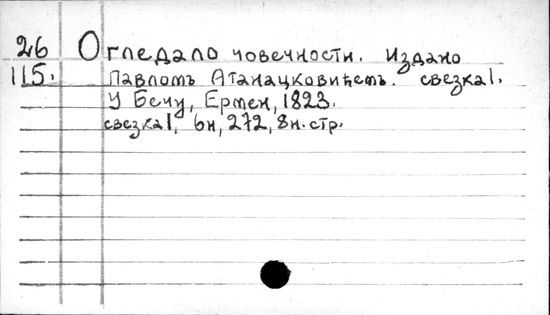 26 Огледало човечности. Издано
115. Павломъ Атанацковићемъ. свезка 1.
У Бечу, Ермен, 1823.
свезка 1, 6н, 272, 8н. стр.